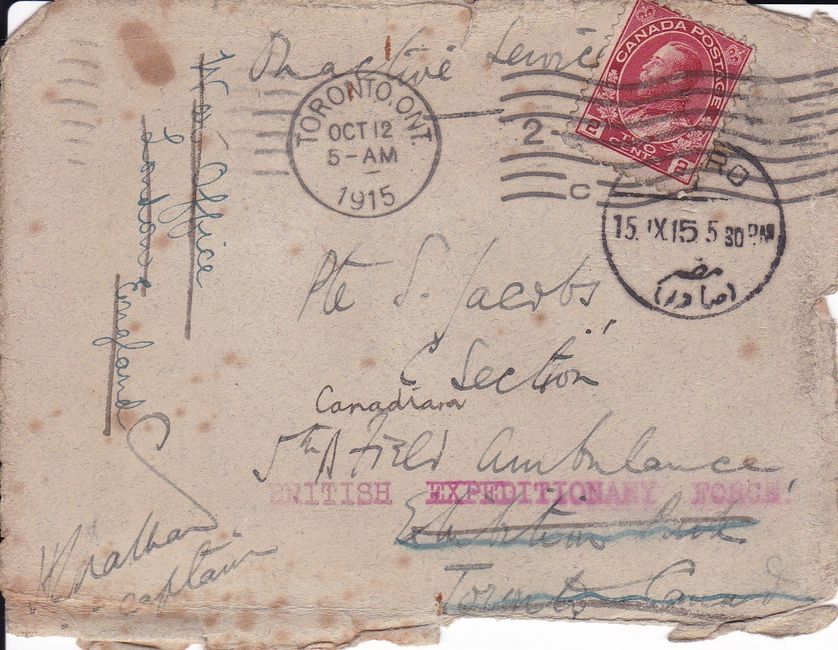 On Active Service
CANADA POSTAGE
2 TWO CENTS 2
TORONTO, ONT.
OCT 12
5-AM
1915
2
C
RO
15. IX.15 5 30 PM
مصر
(صادر)
War Office
London
England
Pte S. Jacobs,
C Section
Canadian
5th ∧ Field Ambulance
BRITISH EXPEDITIONARY FORCE.
Exhibition Park
Toronto Canad
Captain